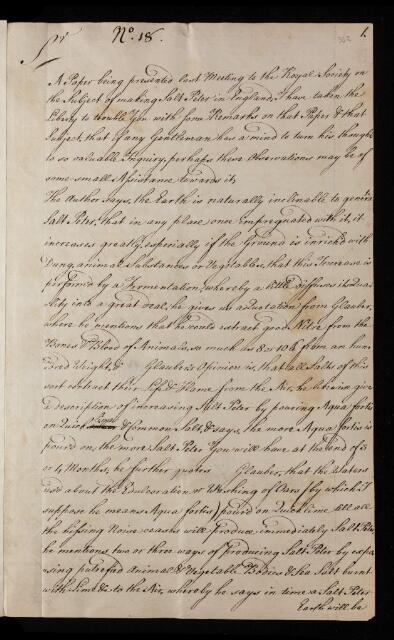 Sr No. 18. 1.
A Paper being presented last Meeting to the Royal Society on
the Subject of making Salt Peter in England, I have taken the
Liberty to trouble You with some Remarks on that Paper & that
Subject, that if any Gentleman has a mind to turn his thoughts
to so valuable Inquiry, perhaps these Observations may be of
some small Assistance towards it,
The Author says, the Earth is naturally inclinable to
Salt Peter, that in any place once impregnated with it, it
increases greatly, especially if the Ground is enrich'd with
Dung, animal Substances or Vegetables, that this Increase is
perform'd by a Fermentation, whereby a little diffuses its
into a great deal, he gives us a Quotation from Glauber,
where he mentions that he could extract good Nitre from the
Bones & Blood of Animals, so much as 8 or 10 lb from an hun
dred Weight, & Glauber's Opinion is, that all Salts of this
sort extract their Life & Flame from the Air, he likewise give
a Description of increasing Salt Peter by pouring Aqua fortis
on Quick Lime & common Salt, & says, the more Aqua fortis is
pour'd on, the more Salt Peter You will have at the End of 3
or 4 Months, he further quotes Glauber, that the Waters
us'd about the or Washing of Oars (by which I
suppose he means Aqua fortis) pour'd on Quick lime till all
the hissing Noise ceases will produce immediately Salt Peter,
he mentions two or three ways of producing Salt Peter by expo
sing putrefied Animal & Vegetable Bodies & Sea Salt burnt
with Lime &c to the Air, whereby he says in time a Salt Peter
Earth will be